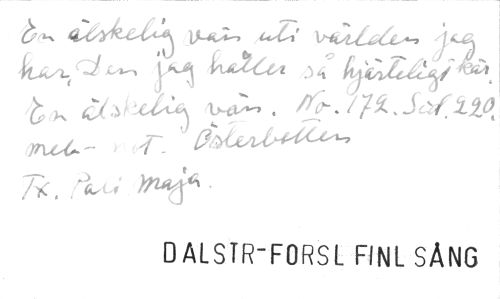 En älskelig vän uti världen jag
har, Den jag håller så hjärteligt kär
En älskelig vän. No. 172. Sid. 220.
med not. Österbotten
Tx. Maja.
DALSTR-FORSL FINL SÅNG